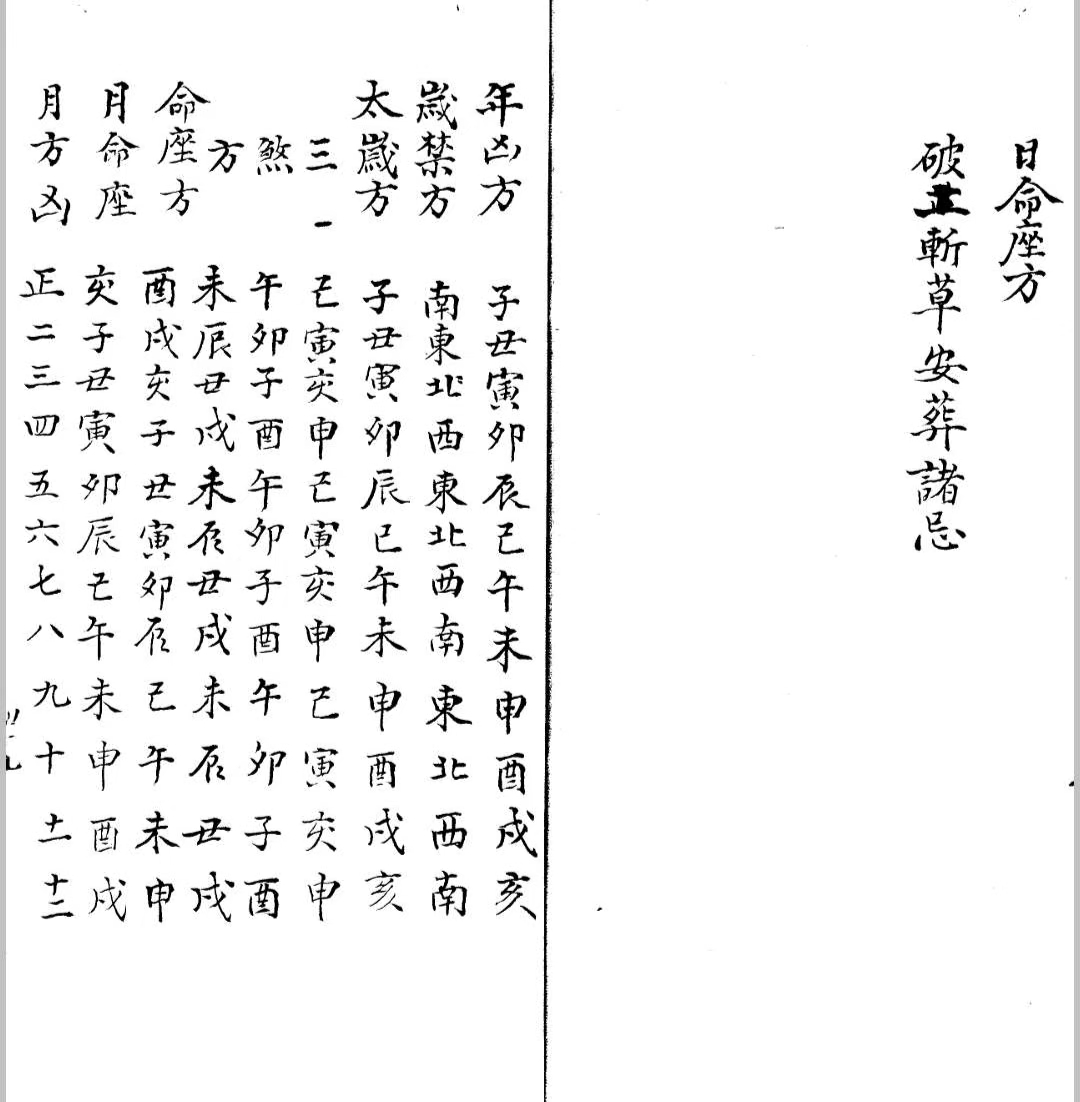 日命座方
破土斬草安葬諸忌
年凶方 子丑寅卯辰巳午未申酉戌亥
歲禁方 南東北西東北西南東北西南
太歲方 子丑寅卯辰巳午未申酉戌亥
三一 巳寅亥申巳寅亥申巳寅亥申
煞 午卯子酉午卯子酉午卯子酉
方 未辰丑戌未辰丑戌未辰丑戌
命座方 酉戌亥子丑寅卯辰巳午未申
月命座 亥子丑寅卯辰巳午未申酉戌
月方凶 正二三四五六七八九十十一十二